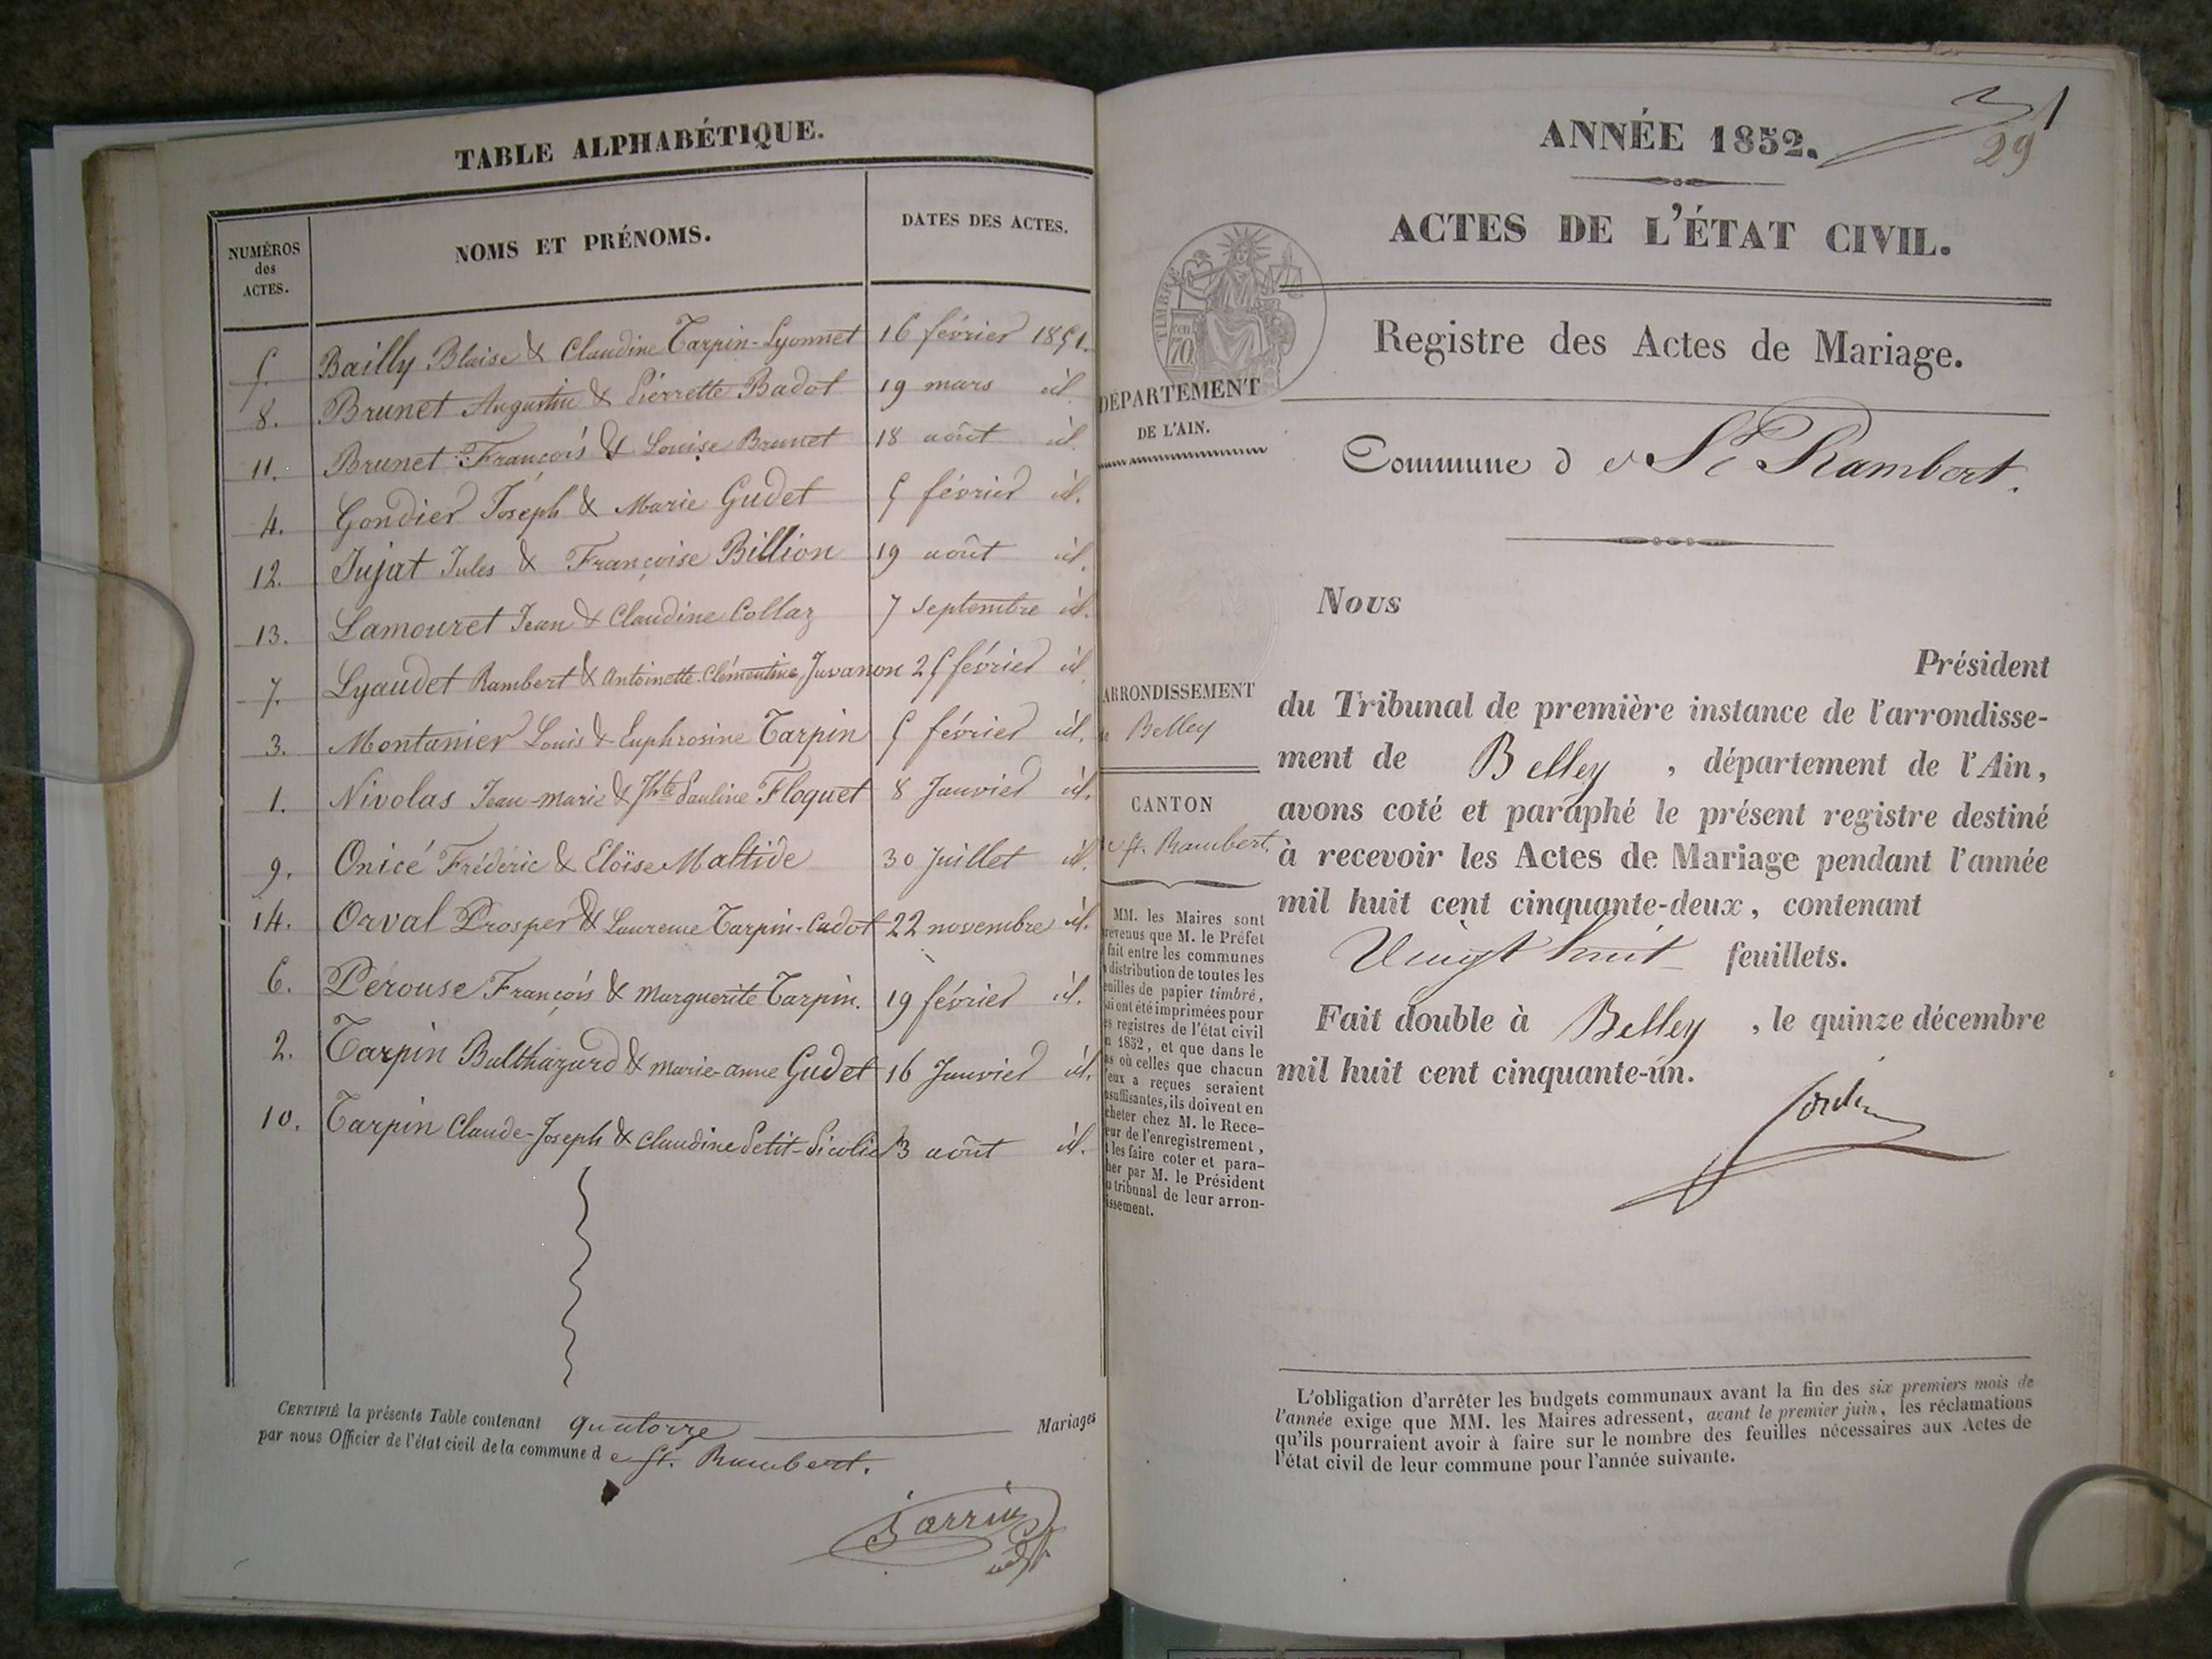 TABLE ALPHABÉTIQUE.
NUMÉROS des ACTES. NOMS ET PRÉNOMS. DATES DES ACTES.
5. Bailly Blaise & Claudine Tarpin-Lyonnet 16 février 1851.
8. Brunet Augustin & Pierrette Badot 19 mars id.
11. Brunet François & Louise Brunet 18 août id.
4. Gondier Joseph & Marie Gudet 5 février id.
12. Jujat Jules & Françoise Billion 19 août id.
13. Lamouret Jean & Claudine Collaz 7 Septembre id.
7. Lyaudet Rambert & Antoinette-Clémentine Juvanon 25 février id.
3. Montanier Louis & Euphrosine Tarpin 5 février id.
1. Nivolas Jean-Marie & Jhte Pauline Floquet 8 Janvier id.
9. Onicé Frédéric & Eloïse Maltide 30 Juillet id.
14. Orval Prosper & Laurence Tarpin-Cadot 22 novembre id.
6. Pérouse François & Marguerite Tarpin. 19 février id.
2. Tarpin Balthazard & Marie-anne Gudet 16 Janvier id.
10. Tarpin Claude-Joseph & Claudine Petit- 13 août id.
CERTIFIÉ la présente Table contenant quatorze Mariages
par nous Officier de l'état civil de la commune d e St. Rambert.
Jarrin
1
29
ANNÉE 1852.
ACTES DE L'ÉTAT CIVIL.
TIMBRE
70
Registre des Actes de Mariage.
DÉPARTEMENT
DE L'AIN.
Commune d e St Rambert.
Nous
Président
du Tribunal de première instance de l'arrondisse-
ment de Belley , département de l'Ain,
avons coté et paraphé le présent registre destiné
à recevoir les Actes de Mariage pendant l'année
mil huit cent cinquante-deux, contenant
Vingt huit feuillets.
Fait double à Belley , le quinze décembre
mil huit cent cinquante-un.
ARRONDISSEMENT
Belley
CANTON
St. Rambert.
MM. les Maires sont
revenus que M. le Préfet
fait entre les communes
distribution de toutes les
euilles de papier timbré,
ui ont été imprimées pour
es registres de l'état civil
n 1852, et que dans le
as où celles que chacun
'eux a reçues seraient
nsuffisantes, ils doivent en
cheter chez M. le Rece-
eur de l'enregistrement,
les faire coter et para-
her par M. le Président
u tribunal de leur arron-
issement.
L'obligation d'arrêter les budgets communaux avant la fin des six premiers mois de
l'année exige que MM. les Maires adressent, avant le premier juin, les réclamations
qu'ils pourraient avoir à faire sur le nombre des feuilles nécessaires aux Actes de
l'état civil de leur commune pour l'année suivante.